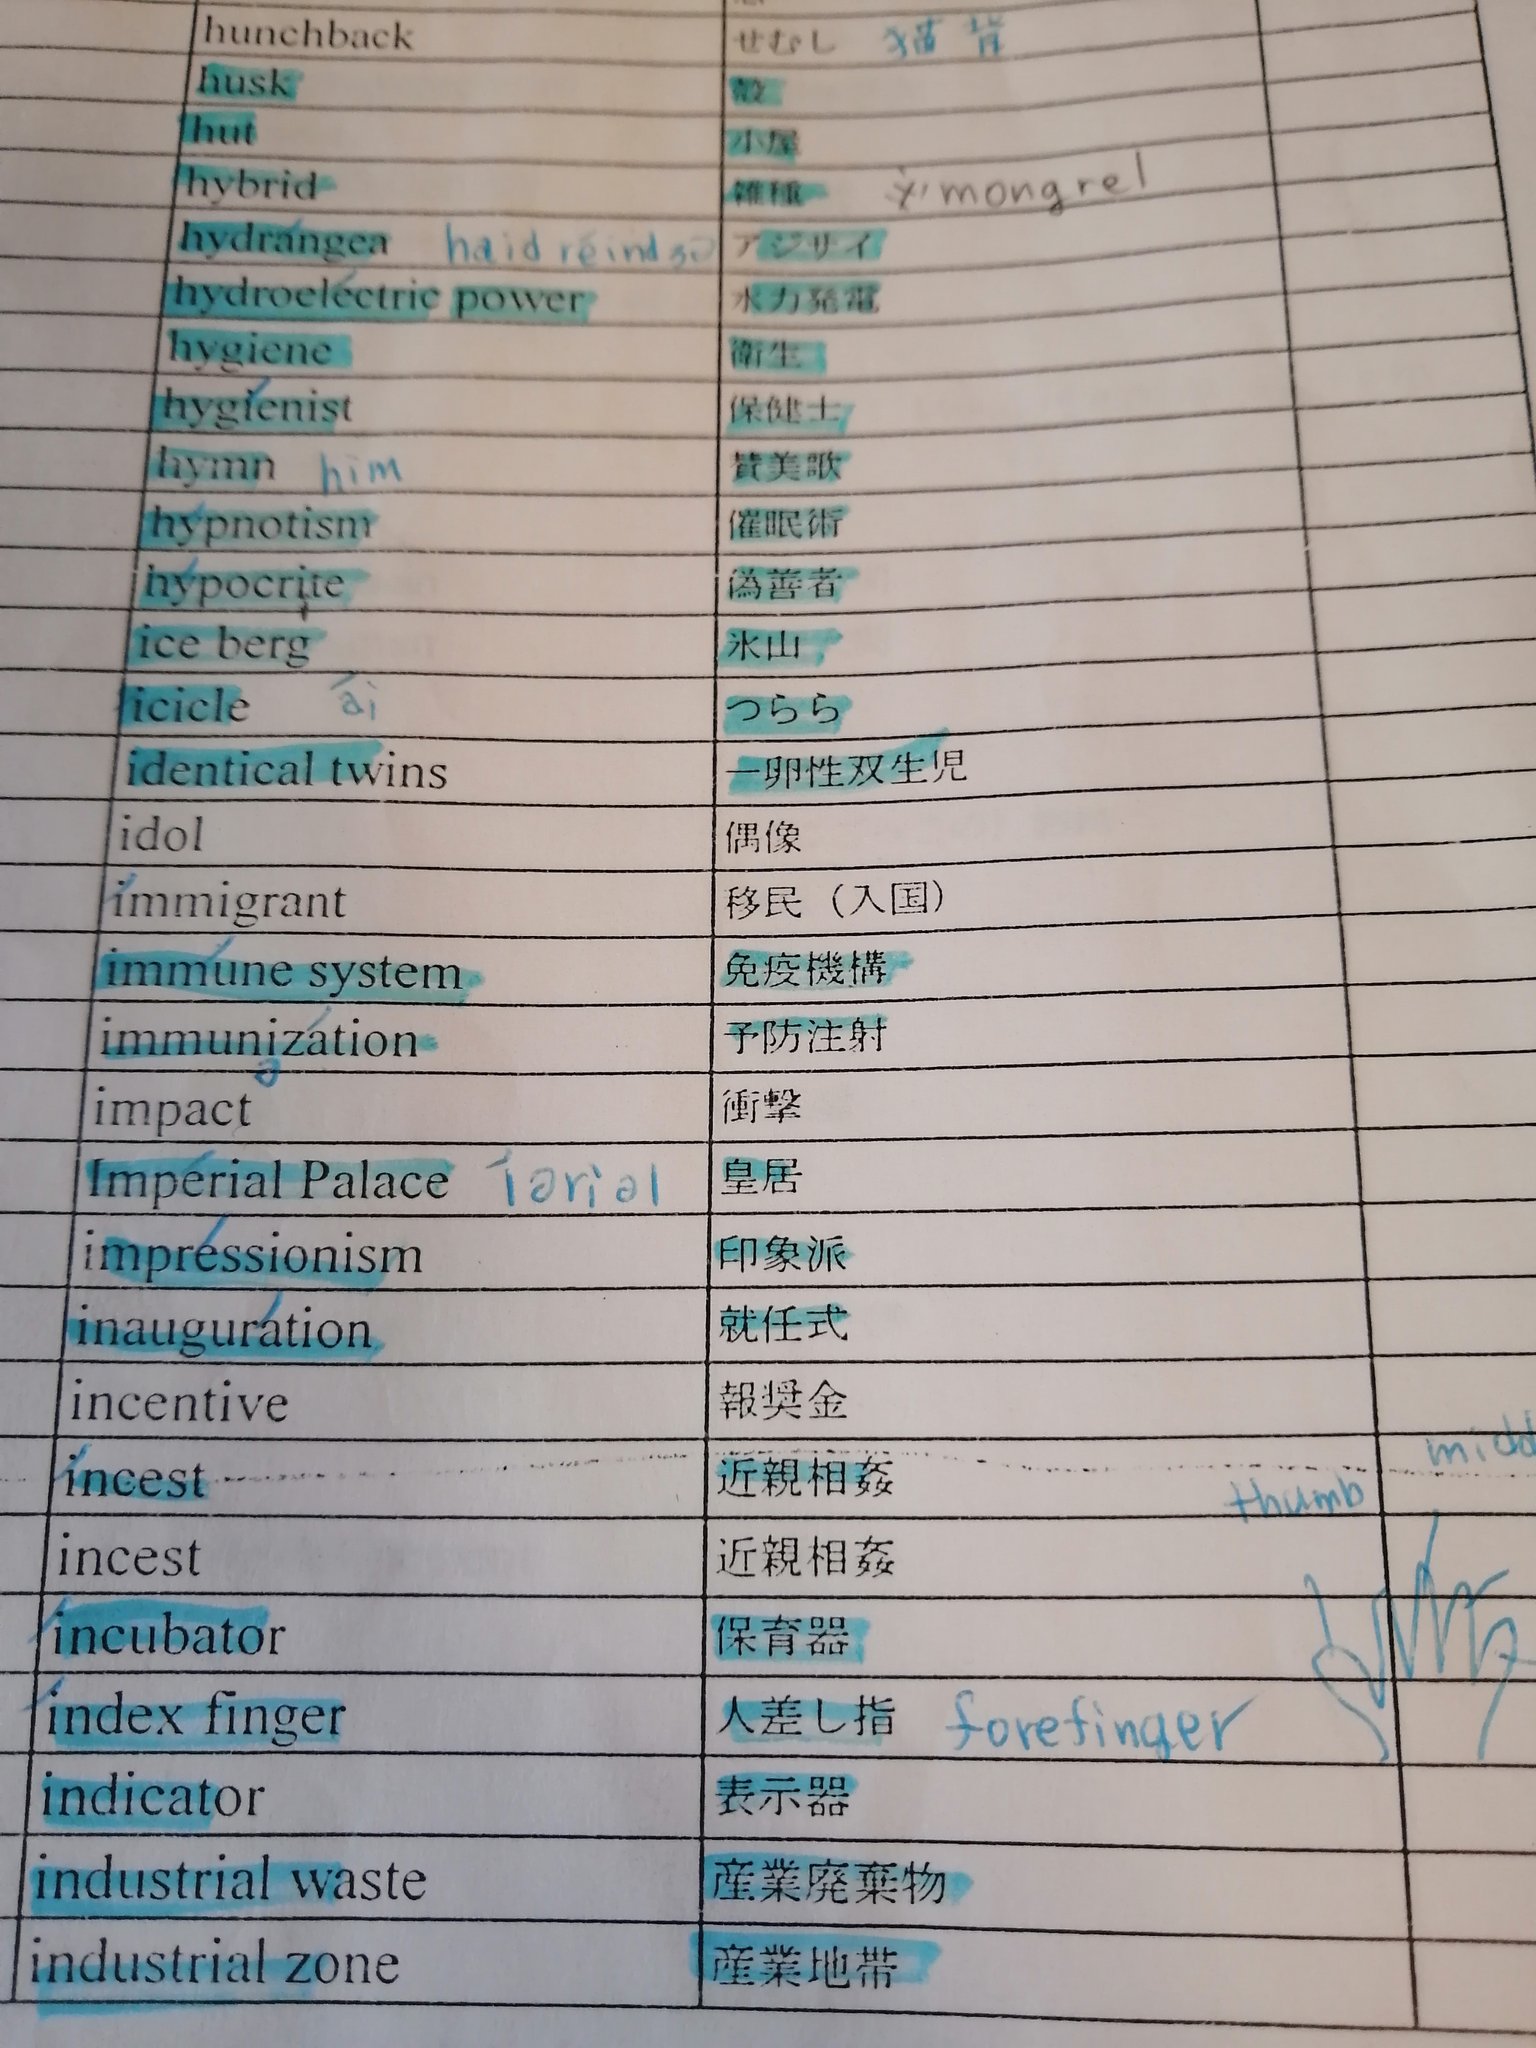 hunchback せむし 猫背
husk 殻
hut 小屋
hybrid 雑種 mongrel
hydrangea haidréindʒə アジサイ
hydroelectric power 水力発電
hygiene 衛生
hygienist 保健士
hymn him 賛美歌
hypnotism 催眠術
hypocrite 偽善者
ice berg 氷山
icicle ái つらら
identical twins 一卵性双生児
idol 偶像
immigrant 移民（入国）
immune system 免疫機構
immunization 予防注射
ə
impact 衝撃
Imperial Palace íəriəl 皇居
impressionism 印象派
inauguration 就任式
incentive 報奨金
midd
incest 近親相姦 thumb
incest 近親相姦
incubator 保育器
index finger 人差し指 forefinger
indicator 表示器
industrial waste 産業廃棄物
industrial zone 産業地帯